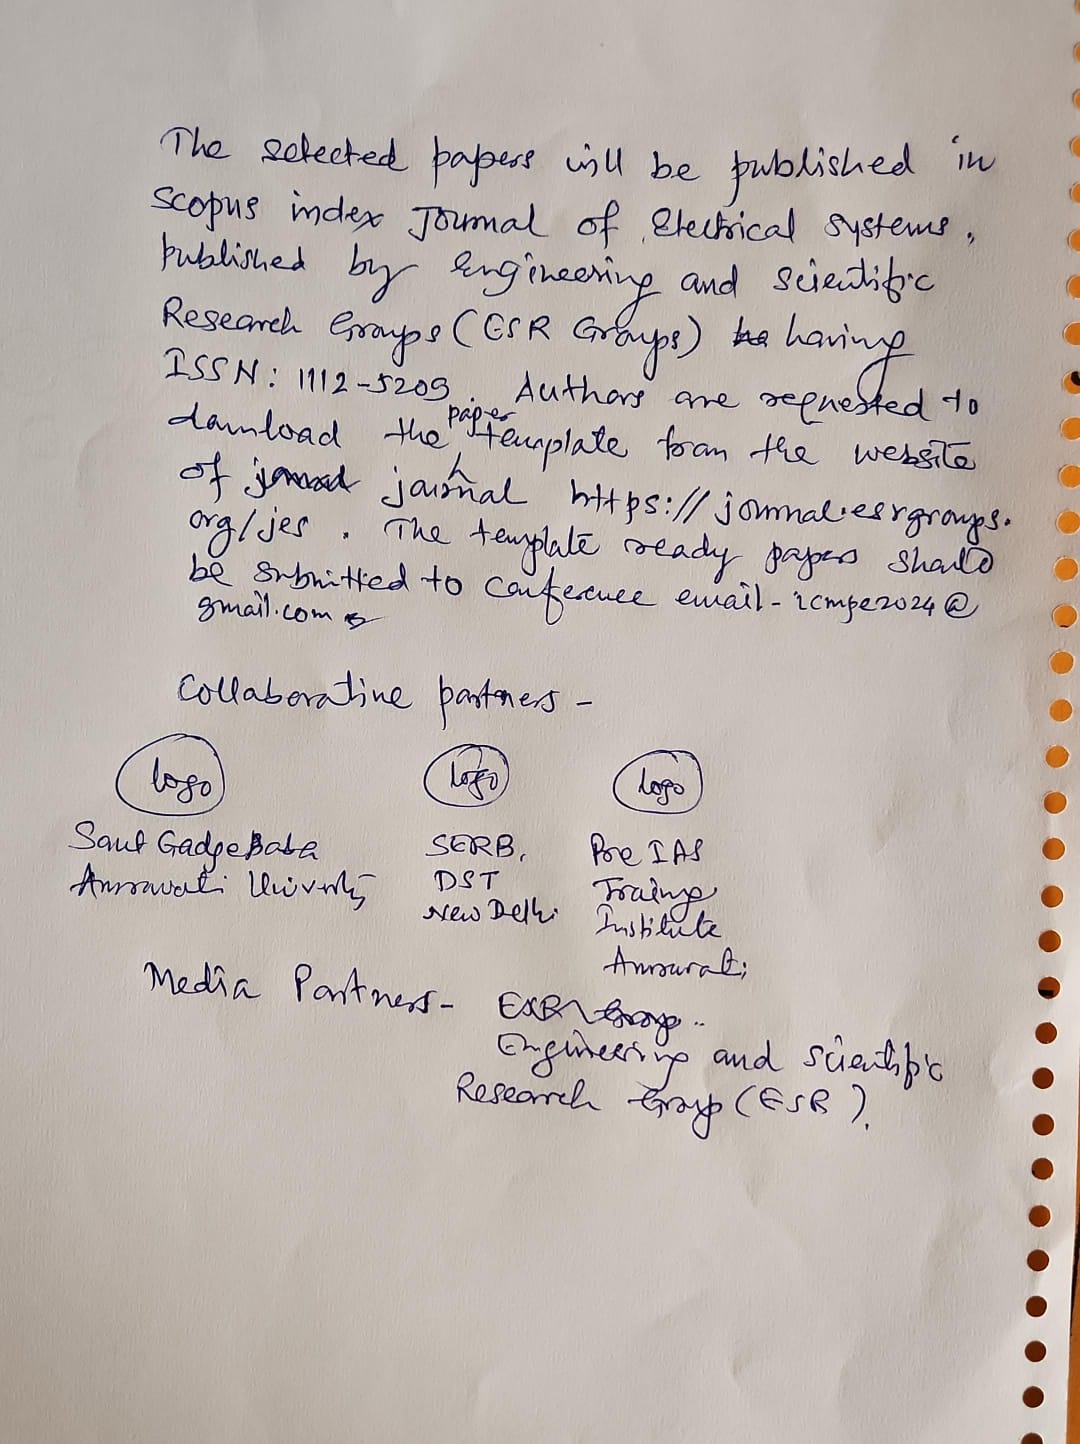 The selected papers will be published in
Scopus index Journal of Electrical Systems,
published by Engineering and Scientific
Research Groups (ESR Groups) having
ISSN: 1112-5209. Authors are requested to
download the paper template from the website
of journal https://journal.esrgroups.
org/jes. The template ready papers should
be submitted to conference email - icmpe2024@
gmail.com
Collaborative partners -
logo logo logo
Sant Gadge Baba SERB, Pre IAS
Amravati University DST Training
New Delhi Institute
Amravati
Media Partners -
Engineering and Scientific
Research Group (ESR).